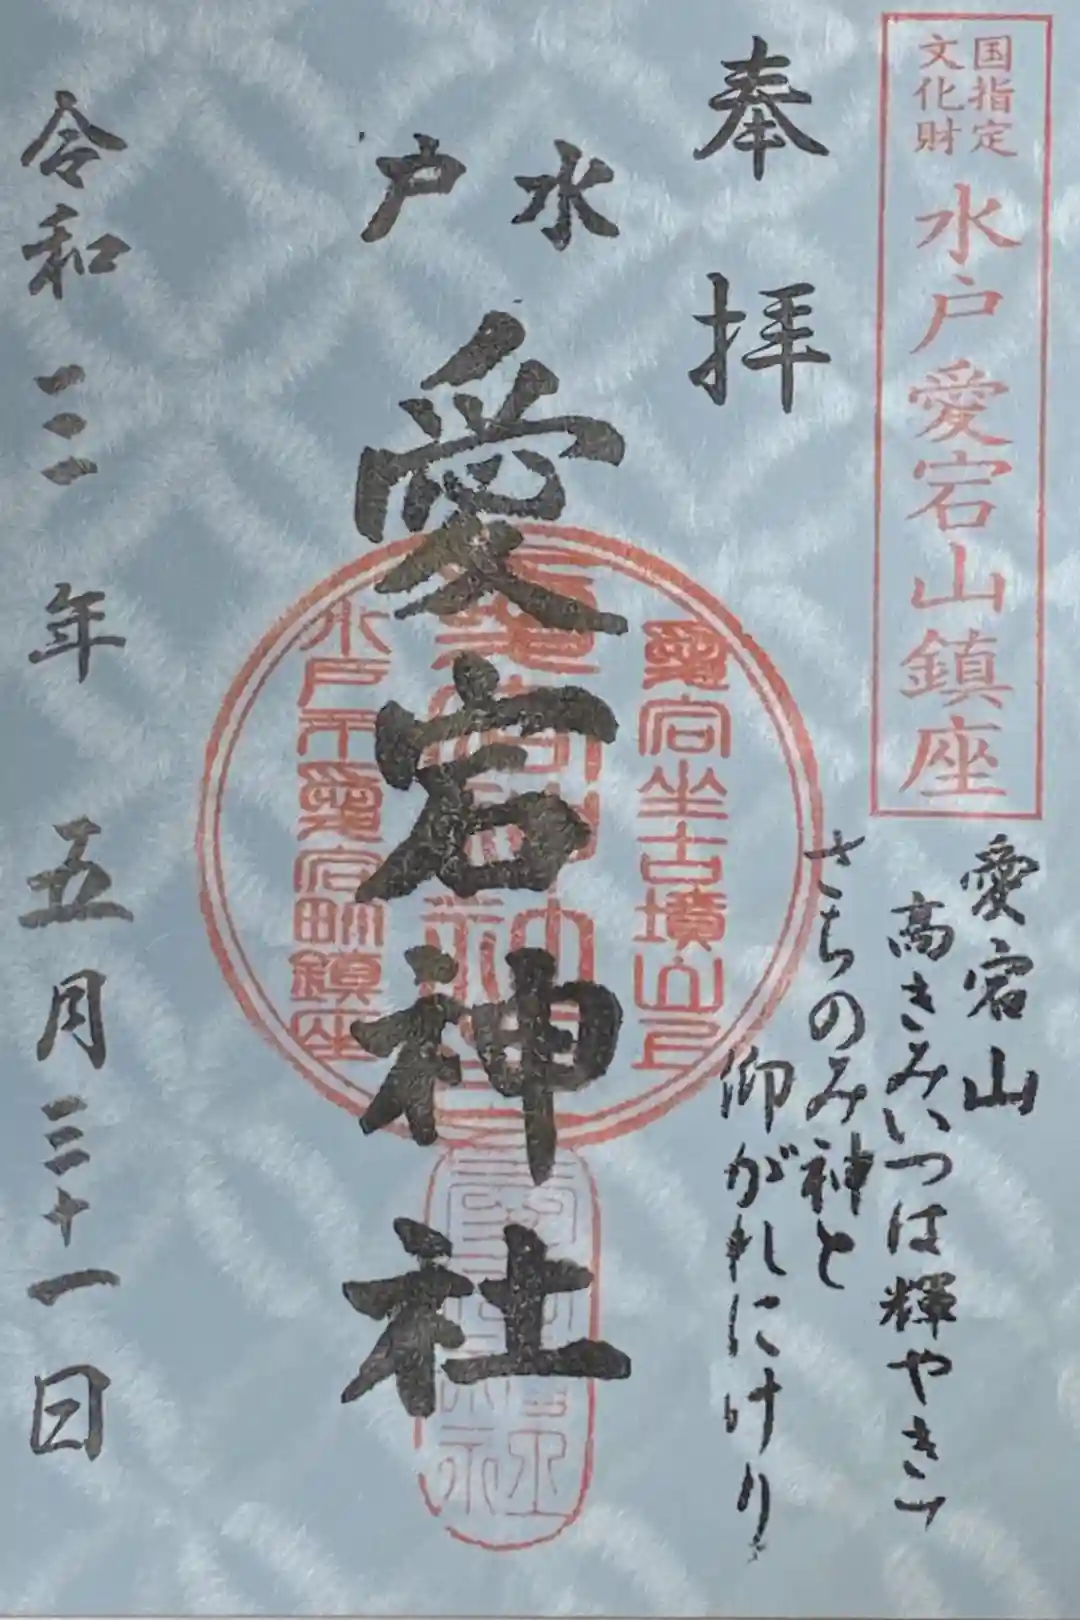 国指定
文化財
水戸愛宕山鎮座
愛宕山
高きみいつは輝やきて
さちのみ神と
仰がれにけり
奉拝
水戸
愛宕神社
愛宕坐古墳山上
水戸市愛宕町鎮座
令和三年五月三十一日